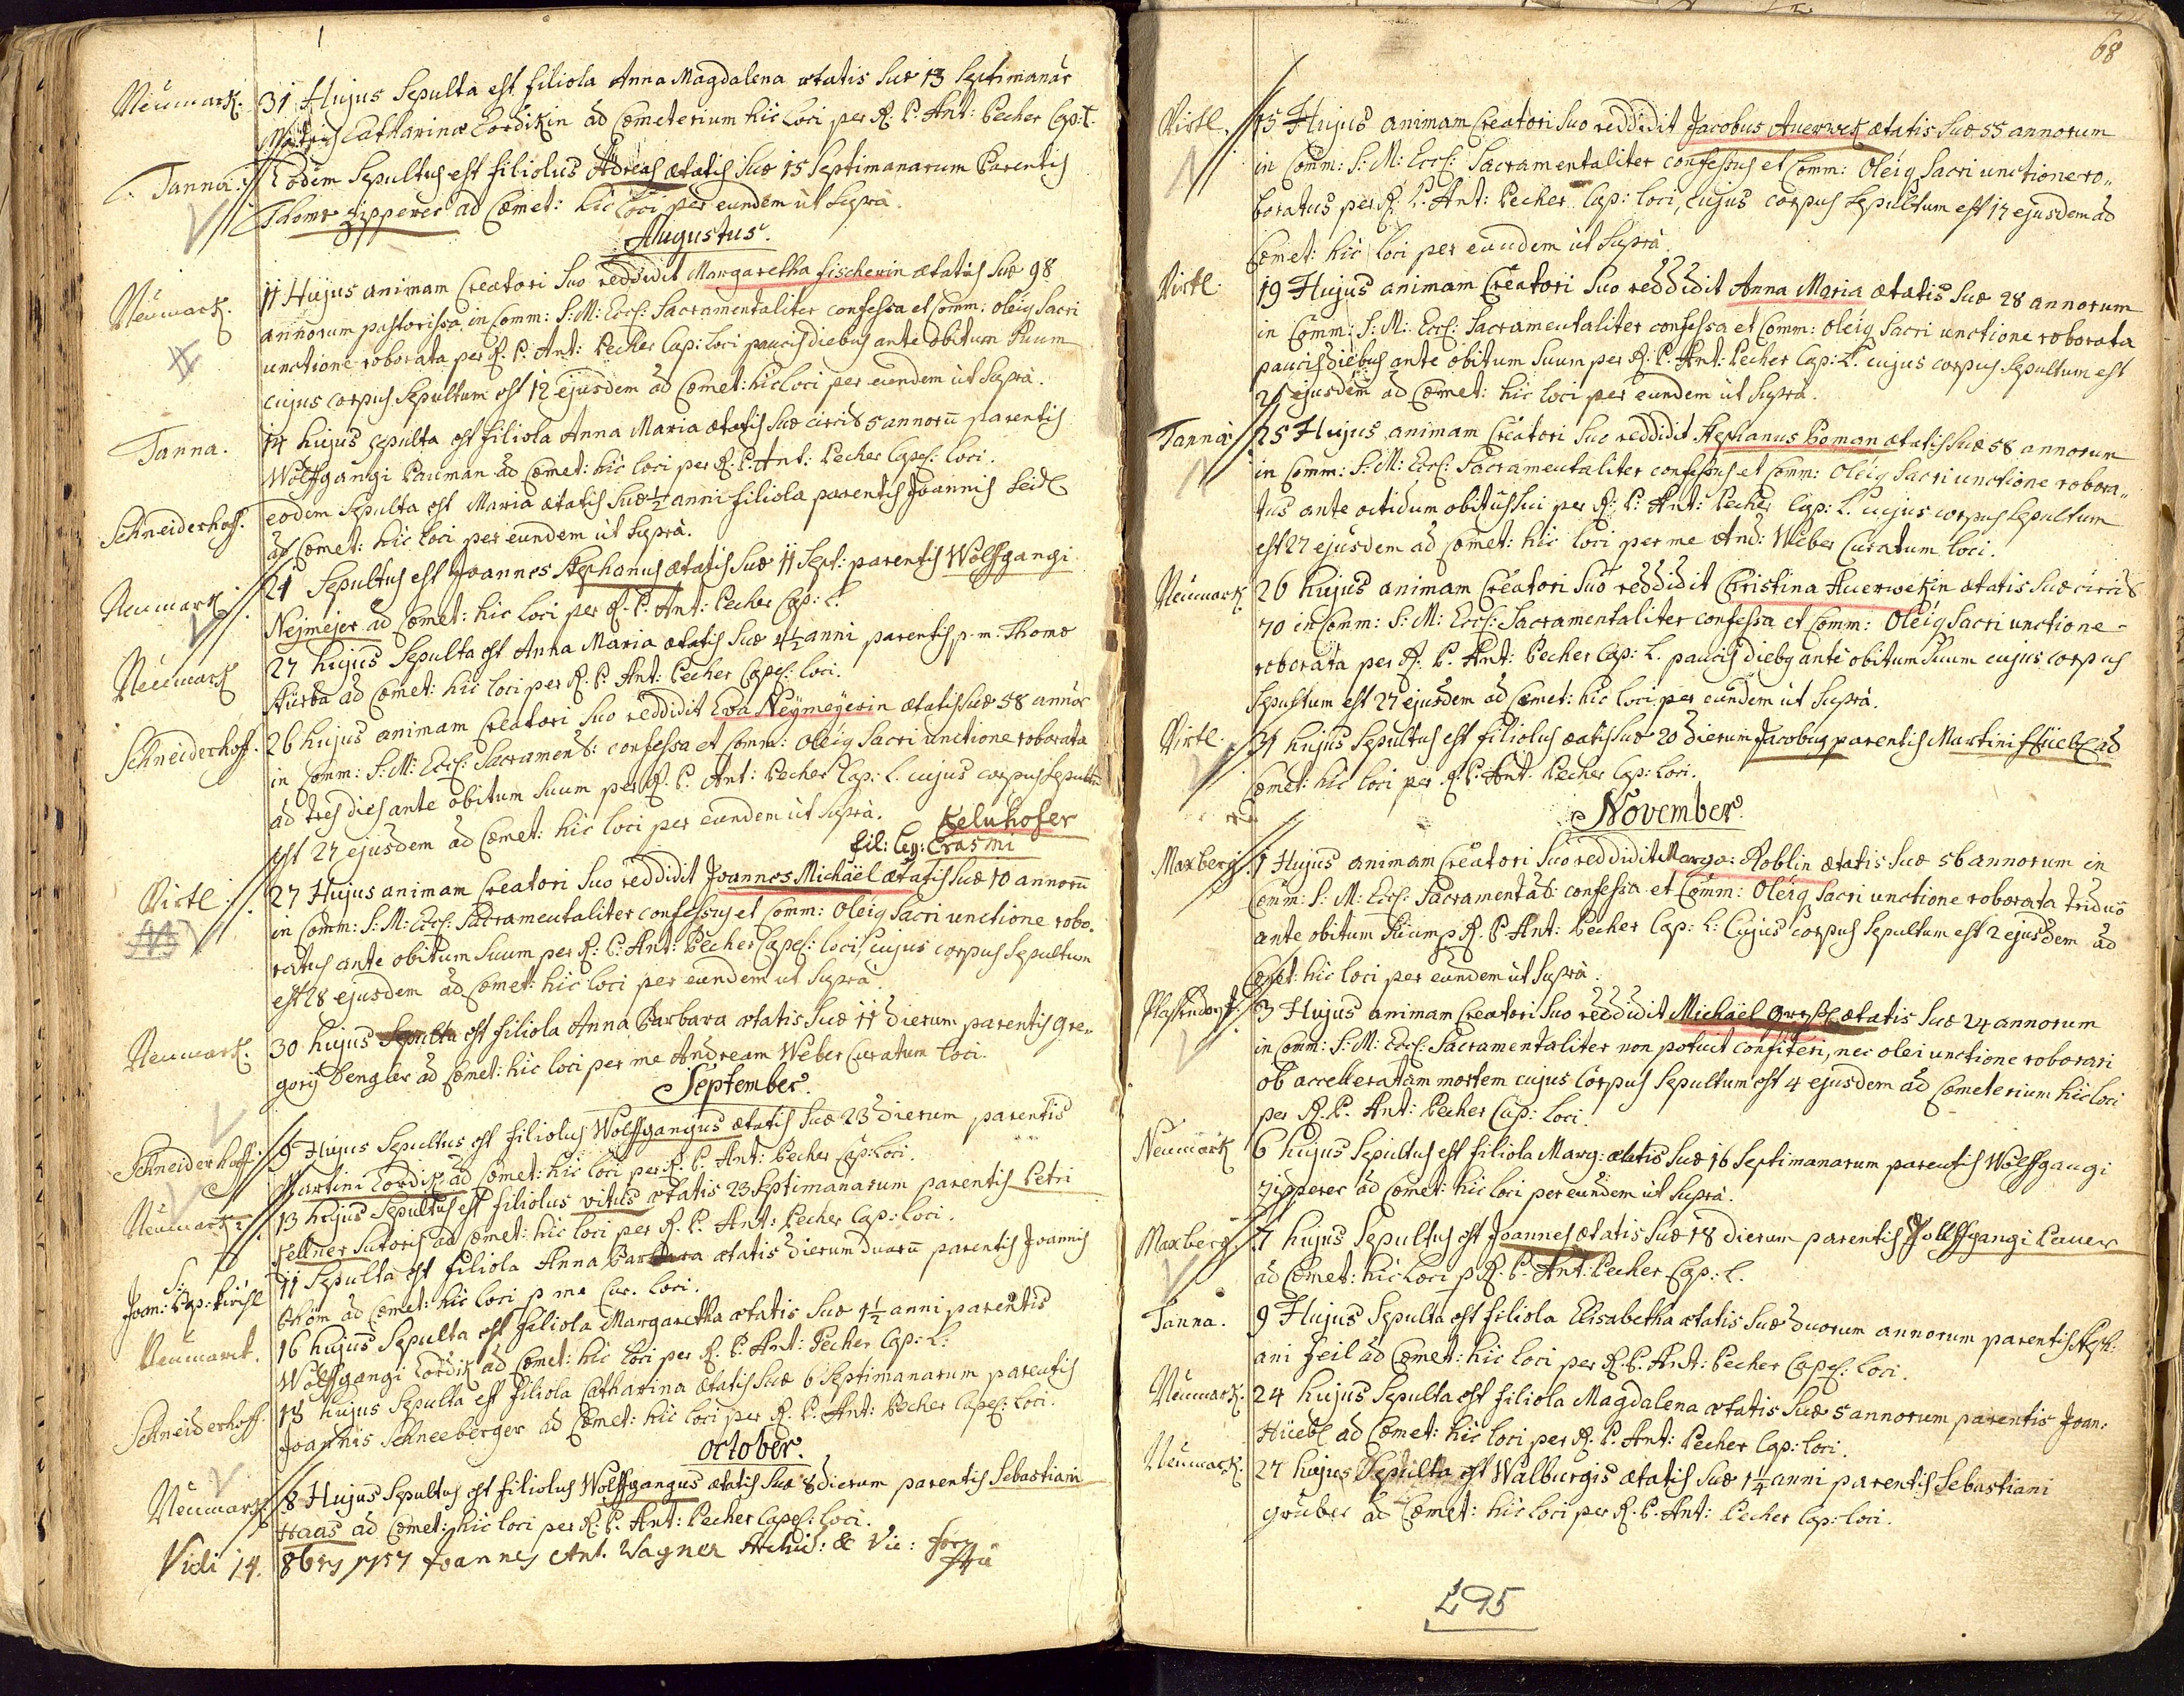 Neumark. 31 Hujus Sepulta est filiola Anna Magdalena ætatis Suæ 13 Septimanar
Matris Catharinæ Lordikin ad Cœmeterium hic Loci per R: P: Ant: Pecher Cap: L.
Tanna: Eodem Sepultus est filiolus Adreas ætatis Suæ 15 Septimanarum Parentis
Thomæ Zipperer ad Cœmet: hic Loci per eundem ut Suprà.
Augustus.
Neumark. 11 Hujus animam Creatori Suo reddidit Margaretha Fischerin ætatis Suæ 98
annorum pastorissa in Comm: S: M: Eccl: Sacramentaliter confessa et Comm: oleiq Sacri
unctione roborata per R: P: Ant: Pecher Cap: loci paucis diebus ante obitum Suum
cujus corpus Sepultum est 12 ejusdem ad Cœmet: hic Loci per eundem ut Suprà.
Tanna. 14 hujus Sepulta est filiola Anna Maria ætatis Suæ circit 5 annorū parentis
Wolffgangi Pauman ad Cœmet: hic loci per R: P: Ant: Pecher Capel: loci.
Schneiderhoff. eodem Sepulta est Maria ætatis Suæ ½ anni filiola parentis Joannis Seidl
ad Cœmet: hic loci per eundem ut Suprà.
Neumark 21 Sepultus est Joannes Stephanus ætatis Suæ 11 Sept: parentis Wolffgangi
Nejmejer ad Cœmet: hic loci per R: P: Ant: Pecher Cap: L.
Neumark 27 hujus Sepulta est Anna Maria ætatis Suæ 4½ anni parentis p. m. Thomæ
Kurba ad Cœmet: hic loci per R: P: Ant: Pecher Capel: loci.
Schneiderhoff. 26 hujus animam Creatori Suo reddidit Eva Neÿmeÿerin ætatis Suæ 58 annor
in Comm: S: M: Eccl: Sacrament: confessa et Comm: oleiq Sacri unctione roborata
ad tres dies ante obitum Suum per R: P: Ant: Pecher Cap: L. cujus corpus Sepultū
est 27 ejusdem ad Cœmet: hic loci per eundem ut Suprà. Kelnhofer
fil: leg: Erasmi
Virtl. 27 Hujus animam Creatori Suo reddidit Joannes Michaël ætatis Suæ 10 annorū
in Comm: S: M: Eccl: Sacramentaliter confessus et Comm: Oleiq Sacri unctione robo-
ratus ante obitum Suum per R: P: Ant: Pecher Capel: loci, cujus corpus Sepultum
est 28 ejusdem ad Cœmet: hic loci per eundem ut Suprà.
Neumark. 30 hujus Sepulta est filiola Anna Barbara ætatis Suæ 11 dierum parentis Gre-
gorÿ Dengler ad Cœmet: hic loci per me Andream Weber Curatum loci.
September.
Schneiderhoff. 9 Hujus Sepultus est filiolus Wolffgangus ætatis Suæ 23 dierum parentis
Martini Lordik ad Cœmet: hic loci per R: P: Ant: Pecher Cap: Loci.
Neumark: 13 hujus Sepultus est filiolus vitus ætatis 23 Septimanarum parentis Petri
Kellner Sutoris ad Cœmet: hic loci per R: P: Ant: Pecher Cap: loci.
S: Joan: Bap: Kirchl 11 Sepulta est filiola Anna Barbara ætatis dierum duarū parentis Joannis
Böhm ad Cœmet: hic loci p me Cur. loci.
Neumarck. 16 hujus Sepulta est filiola Margaretha ætatis Suæ 1½ anni parentis
Wolffgangi Lordik ad Cœmet: hic loci per R: P: Ant: Pecher Cap: L:
Schneiderhoff. 18 hujus Sepulta est filiola Catharina ætatis Suæ 6 Septimanarum parentis
Joannis Schneeberger ad Cœmet: hic loci per R: P: Ant: Pecher Capel: loci.
October.
Neumark 8 Hujus Sepultus est filiolus Wolffgangus ætatis Suæ 8 dierum parentis Sebastiani
Haas ad Cœmet: hic loci per R: P: Ant: Pecher Capel: loci.
Vidi 14. 8bris 1757 Joannes Ant. Wagner Archid: & Vic: for
68
Virtl. 15 Hujus animam Creatori Suo reddidit Jacobus Auerwek ætatis Suæ 55 annorum
in Comm: S: M: Eccl: Sacramentaliter confessus et Comm: Oleiq Sacri unctione ro-
boratus per R: P: Ant: Pecher Cap: loci, cujus corpus Sepultum est 17 ejusdem ad
Cœmet: hic loci per eundem ut Suprà.
Virtl. 19 Hujus animam Creatori Suo reddidit Anna Maria ætatis Suæ 28 annorum
in Comm: S: M: Eccl: Sacramentaliter confessa et Comm: oleiq Sacri unctione roborata
paucis diebus ante obitum Suum per R: P: Ant: Pecher Cap: L. cujus corpus Sepultum est
21 ejusdem ad Cœmet: hic loci per eundem ut Suprà.
Tanna: 25 Hujus animam Creatori Suo reddidit Stephanus Homan ætatis Suæ 58 annorum
in Comm: S: M: Eccl: Sacramentaliter confessus et Comm: Oleiq Sacri unctione robora-
tus ante octiduum obitus sui per R: P: Ant: Pecher Cap: L. cujus corpus Sepultum
est 27 ejusdem ad cœmet: hic loci per me And: Weber Curatum loci.
Neumark 26 hujus animam Creatori Suo reddidit Christina Auerwekin ætatis Suæ circit
70 in Comm: S: M: Eccl: Sacramentaliter confessa et Comm: Oleiq Sacri unctione
roborata per R: P: Ant: Pecher Cap: L. paucis dieb9 ante obitum Suum cujus corpus
Sepultum est 27 ejusdem ad Cœmet: hic loci per eundem ut Suprà.
Virtl. 31 hujus Sepultus est filiolus æatis Suæ 20 dierum Jacobus parentis Martini Hüebl ad
Cœmet: hic loci per R: P: Ant: Pecher Cap: loci.
November.
Maxberg. 1 Hujus animam Creatori Suo reddidit Marga: Roblin ætatis Suæ 56 annorum in
Comm: S: M: Eccl: Sacramental: confessa et Comm: Oleiq Sacri unctione roborata triduo
ante obitum Suum p R: P. Ant: Pecher Cap: L: Cujus corpus Sepultum est 2 ejusdem ad
Cœmet: hic loci per eundem ut Suprà.
Plassendorf. 3 Hujus animam Creatori Suo reddidit Michaël ætatis Suæ 24 annorum
in Comm: S: M: Eccl: Sacramentaliter non potuit confiteri, nec olei unctione roborari
ob accelleratam mortem cujus Corpus Sepultum est 4 ejusdem ad Cœmeterium hic loci
per R: P. Ant: Pecher Cap: loci.
Neumark 6 hujus Sepultus est filiola Marg: ætatis Suæ 16 Septimanarum parentis Wolffgangi
Zipperer ad Cœmet: hic loci per eundem ut Suprà.
Maxberg. 7 hujus Sepultus est Joannes ætatis Suæ 18 dierum parentis Wolffgangi Pauer
ad Cœmet: hic loci p R: P: Ant: Pecher Cap: L.
Tanna. 9 Hujus Sepulta est filiola Elisabetha ætatis Suæ duorum annorum parentis Steph-
ani Feil ad Cœmet: hic loci per R: P: Ant: Pecher Capel: loci.
Neumark. 24 hujus Sepulta est filiola Magdalena ætatis Suæ 5 annorum parentis Joan:
Hüebl ad Cœmet: hic loci per R: P: Ant: Pecher Cap: loci.
Neumark. 27 hujus Sepulta est Walburgis ætatis Suæ 1¼ anni parentis Sebastiani
Gruber ad Cœmet: hic loci per R. P. Ant: Pecher Cap: loci.
295